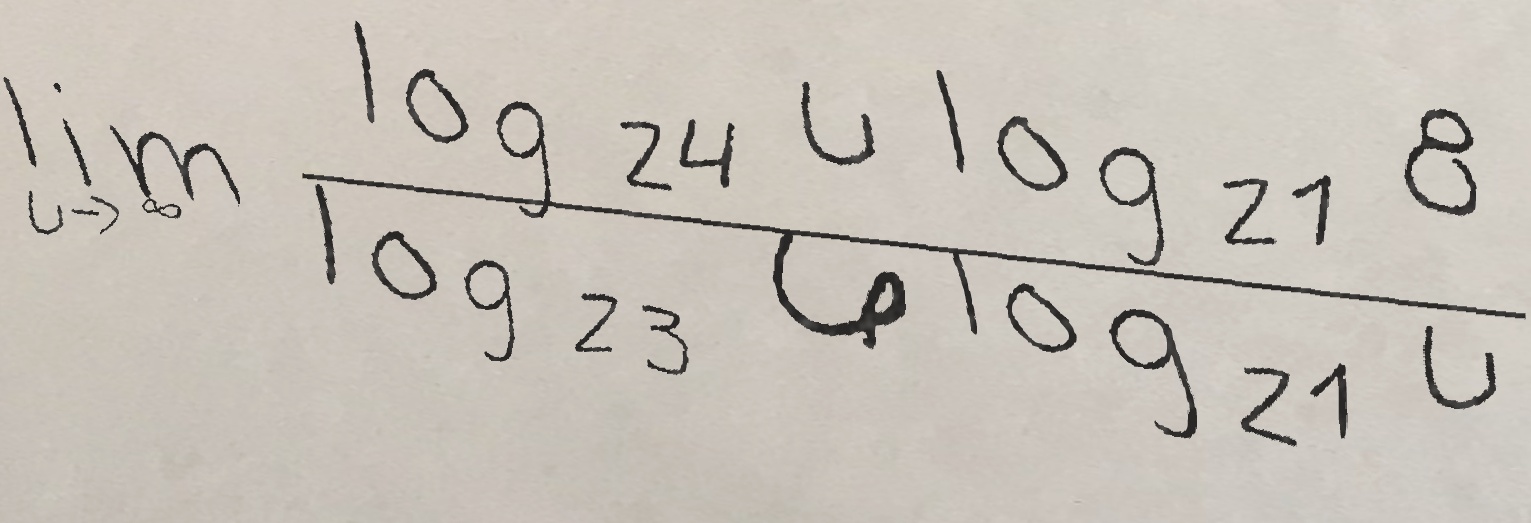 lim u→∞ log 24 u log 21 8
log 23 φ log 21 u